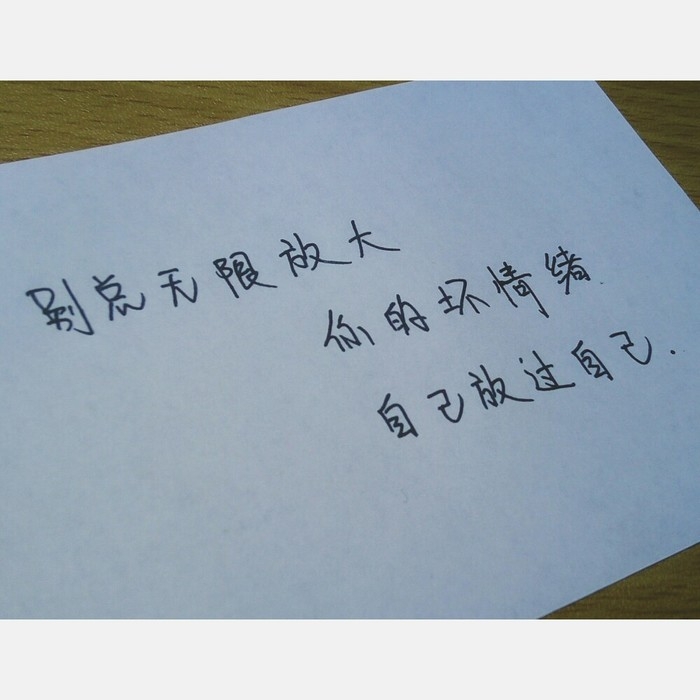 别总无限放大
你的坏情绪.
自己放过自己.